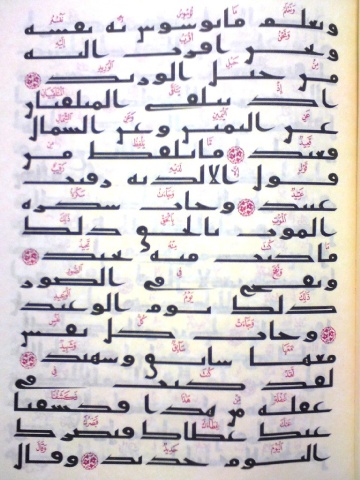 ونعلم ما توسوس به نفسه
ونحن اقرب اليه
من حبل الوريد
اذ يتلقى المتلقيان
عن اليمين وعن الشمال
قعيد ما يلفظ من
قول الا لديه رقيب
عتيد وجات سكرة
الموت بالحق ذلك
ما كنت منه تحيد
ونفخ في الصور
ذلك يوم الوعيد
وجات كل نفس
معها سايق وشهيد
لقد كنت في
غفلة من هذا فكشفنا
عنك غطاك فبصرك
اليوم حديد وقال